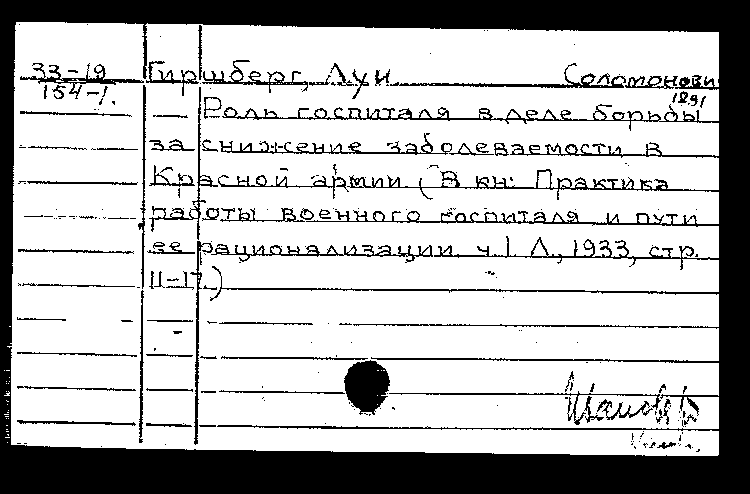 33-19 Гиршберг, Луи Соломонови
154-1. 1891
— Роль госпиталя в деле борьбы
за снижение заболеваемости в
Красной армии (В кн: Практика
работы военного госпиталя и пути
ее рационализации ч. I Л., 1933, стр.
11-17.)